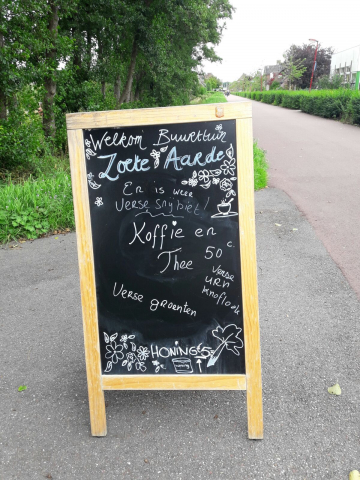 Welkom Buurttuin
Zoete Aarde
Er is weer
verse snijbiet!
Koffie en
Thee
50 c.
verse
knoflook
Verse groenten
HONING